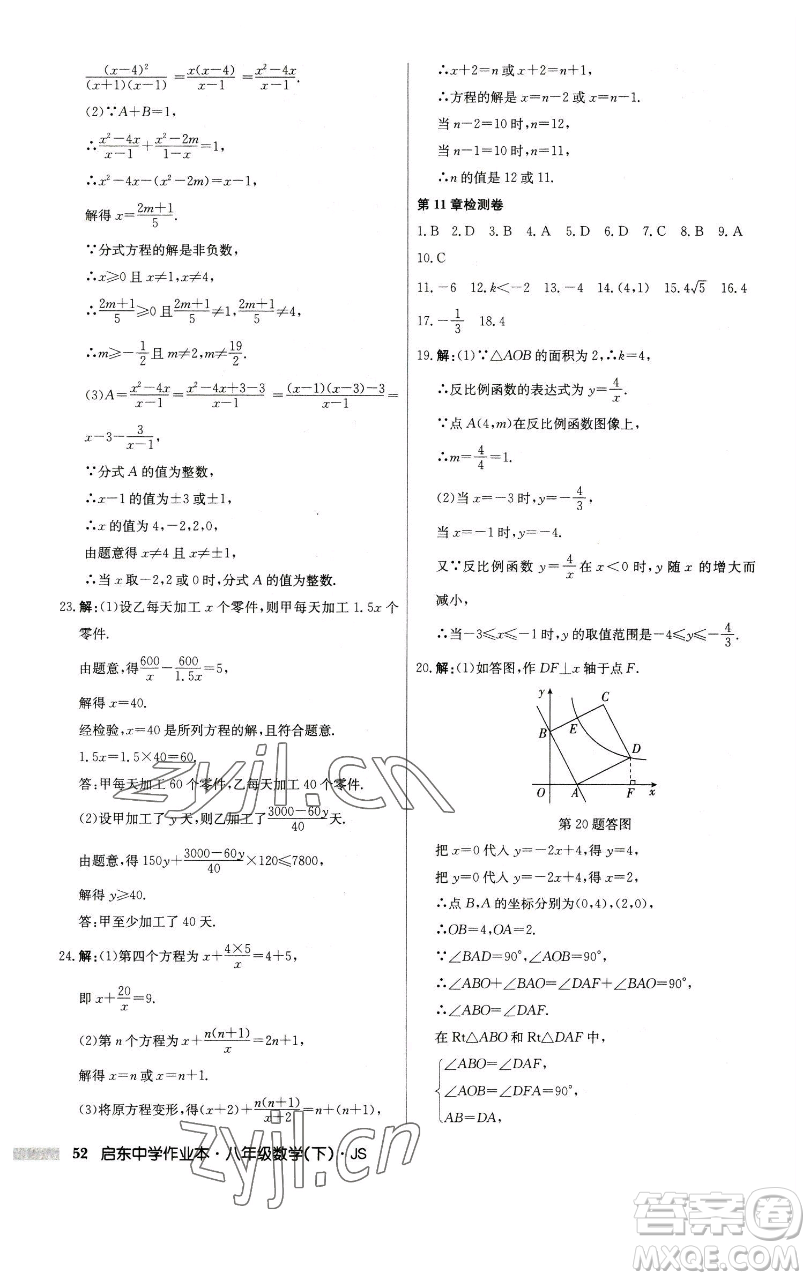 (x-4)²/((x+1)(x-1)) = x(x-4)/(x-1) = (x²-4x)/(x-1).
(2)∵A+B=1,
∴(x²-4x)/(x-1)+(x²-2m)/(1-x)=1,
∴x²-4x-(x²-2m)=x-1,
解得 x=(2m+1)/5.
∵分式方程的解是非负数,
∴x≥0 且 x≠1,
∴(2m+1)/5≥0 且 (2m+1)/5≠1, (2m+1)/5≠4,
∴m≥-1/2 且 m≠2, m≠19/2.
(3)A=(x²-4x)/(x-1)=(x²-4x+3-3)/(x-1)=((x-1)(x-3)-3)/(x-1)=
x-3-3/(x-1),
∵分式 A 的值为整数,
∴x-1 的值为±3 或±1,
∴x 的值为 4,-2,2,0,
由题意得 x≠4 且 x≠±1,
∴当 x 取-2,2 或 0 时,分式 A 的值为整数.
23.解:(1)设乙每天加工 x 个零件,则甲每天加工 1.5x 个
零件.
由题意,得 600/x-600/1.5x=5,
解得 x=40.
经检验,x=40 是所列方程的解,且符合题意.
1.5x=1.5×40=60.
答:甲每天加工 60 个零件,乙每天加工 40 个零件.
(2)设甲加工了 y 天,则乙加工了 (3000-60y)/40 天.
由题意,得 150y+(3000-60y)/40×120≤7800,
解得 y≥40.
答:甲至少加工了 40 天.
24.解:(1)第四个方程为 x+(4×5)/x=4+5,
即 x+20/x=9.
(2)第 n 个方程为 x+n(n+1)/x=2n+1,
解得 x=n 或 x=n+1.
(3)将原方程变形,得(x+2)+n(n+1)/(x+2)=n+(n+1),
∴x+2=n 或 x+2=n+1,
∴方程的解是 x=n-2 或 x=n-1.
当 n-2=10 时,n=12,
当 n-1=10 时,n=11,
∴n 的值是 12 或 11.
第 11 章检测卷
1.B 2.D 3.B 4.A 5.D 6.D 7.C 8.B 9.A
10.C
11.-6 12.k<-2 13.-4 14.(4,1) 15.4√5 16.4
17.-1/3 18.4
19.解:(1)∵△AOB 的面积为 2,∴k=4,
∴反比例函数的表达式为 y=4/x.
∵点 A(4,m)在反比例函数图像上,
∴m=4/4=1.
(2)当 x=-3 时,y=-4/3;
当 x=-1 时,y=-4.
又∵反比例函数 y=4/x 在 x<0 时,y 随 x 的增大而
减小,
∴当-3≤x≤-1 时,y 的取值范围是-4≤y≤-4/3.
20.解:(1)如答图,作 DF⊥x 轴于点 F.
y
C
E
B
D
O A F x
第 20 题答图
把 x=0 代入 y=-2x+4,得 y=4,
把 y=0 代入 y=-2x+4,得 x=2,
∴点 B,A 的坐标分别为(0,4),(2,0),
∴OB=4,OA=2.
∵∠BAD=90°,∠AOB=90°,
∴∠ABO+∠BAO=∠DAF+∠BAO=90°,
∴∠ABO=∠DAF.
在 Rt△ABO 和 Rt△DAF 中,
∠ABO=∠DAF,
∠AOB=∠DFA=90°,
AB=DA,
52 启东中学作业本·八年级数学(下)·JS
zyjl.cn
zyjl.cn
答案圈
MXQE.COM